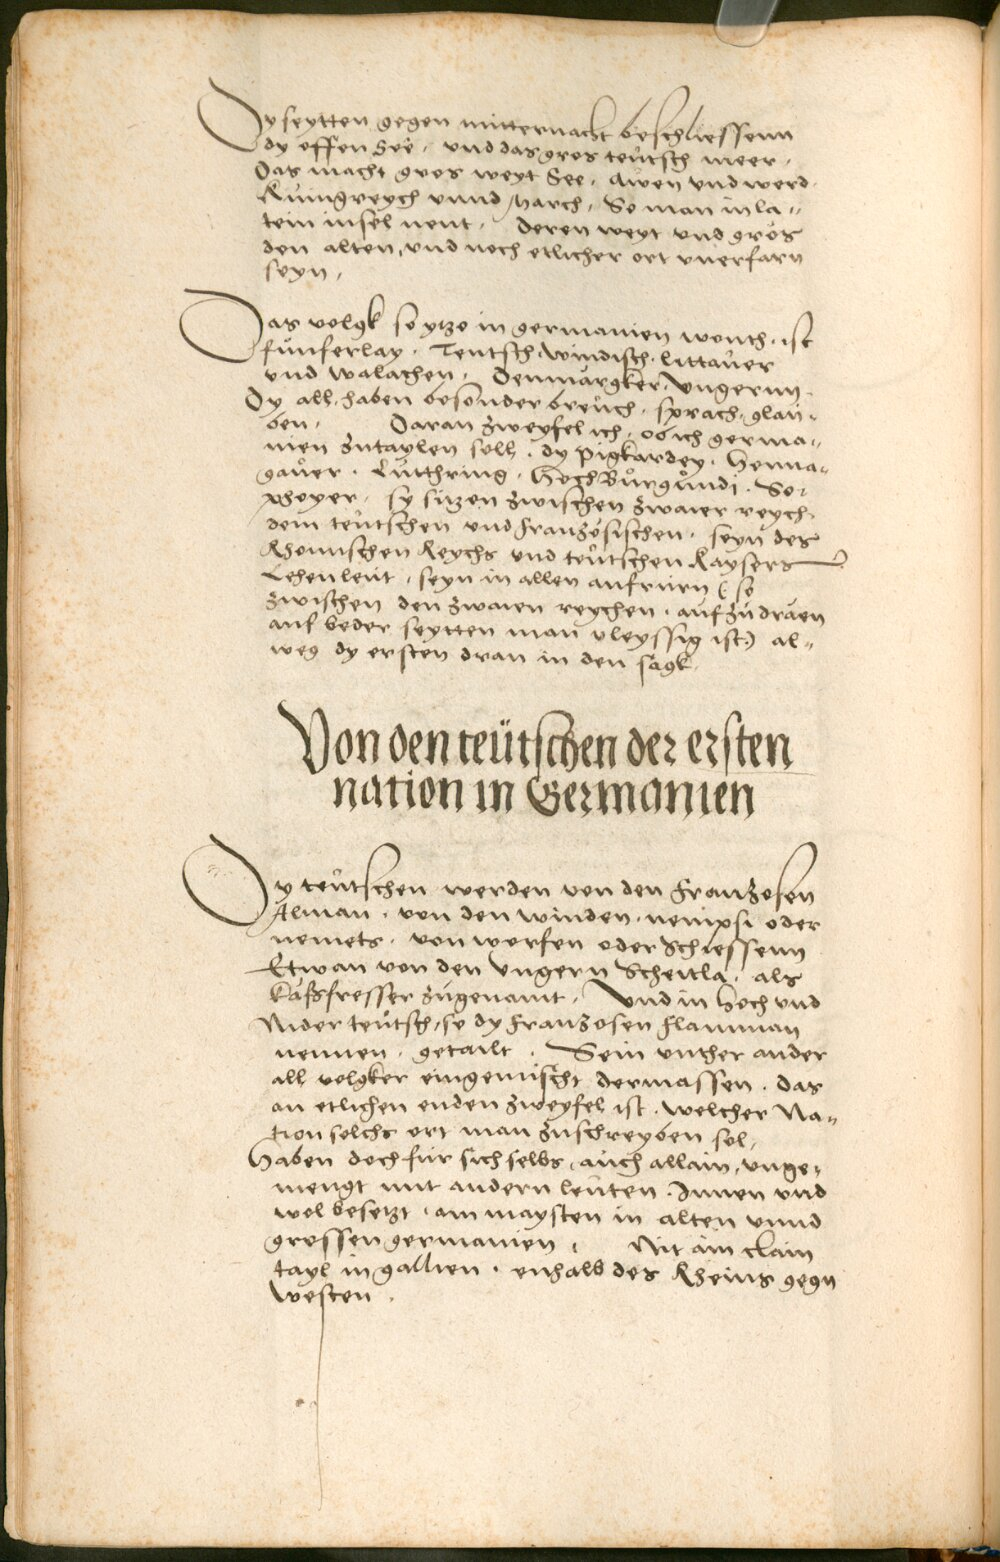 Dy seytten gegen mitternacht beschliessenn
dy offen See. und das gros teutsch meer.
Das macht gros weyt See. Awen vnd werd.
Kunigreych vnnd March. So man in la„
tein insel nent. Deren weyt vnd grös
den alten, vnd noch etlicher ort vnerfarn
seyn.
Das volgk so ytzo in germanien wonth. ist
fünferlay. Teutsch. Windisch. littauer
vnd Walachen. Denmärgker. Vngernn.
Dy all haben besonder breuch. sprach. glau„
ben. Daran zweyfel ich. ob ich germa„
nien zutaylen soll. dy pigkardey. Henna„
gauer. Lutthring. HochBurgundi. So„
phoyer. sy sitzen zwischen zwaier reych.
dem teutschen vnd franzosischen. seyn des
Rhomischen Reychs vnd teutschen Kaysers
Lehenleut. seyn in allen aufrurn (so
zwischen den zwaien reychen. aufzudräen
auf beder seytten man vleyssig ist) al„
weg dy ersten dran in den sagk.
Von den teütschen der ersten
nation in Germanien
Dy teutschen werden von den Franzosen
Alman. von den winden. nempsi oder
nemets. von worfen oder Schiessenn
Etwan von den Vngern Scheitla. als
käßfresser zugenamt. Vnd in Hoch vnd
Nider teutsch, so dy Franzosen flamman
nennen. getailt. Sein vnther ander
all volgker eingemischt dermassen. das
an etlichen enden zweyfel ist. welcher Na„
tion solchs ort man zuschreyben sol.
Haben doch für sich selbs, auch allain, vnge„
mengt mit andern leuten. Innen vnd
wol besetzt. am maysten in alten vnnd
grossen germanien. Nit ain clain
tayl in gallien. enhalb des Rheins gegn
westen.